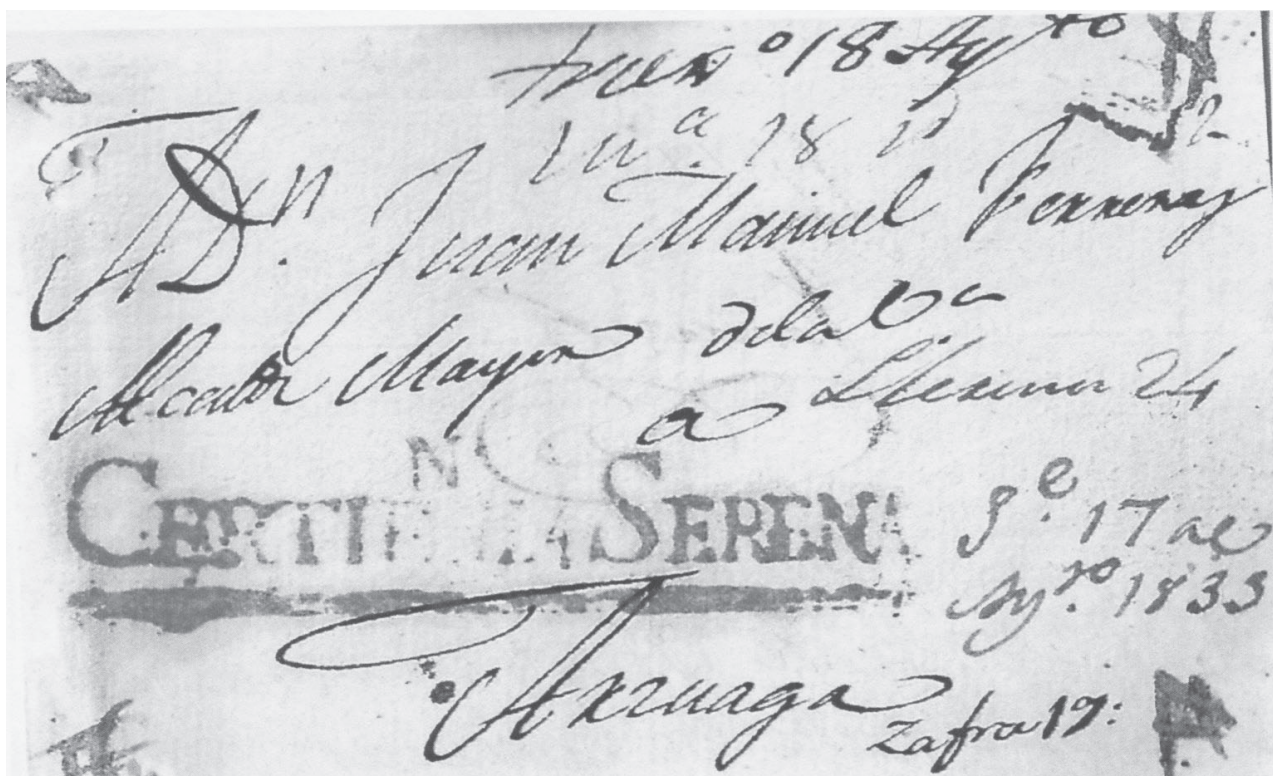 18 Ag.to
A Dn. Juan Manuel Ferreras
Alcalde Mayor dela Va
a Llerena 24
N
CERTI SERENA
Se. 17 de
Ag.to 1833
Azuaga
Zafra 19: